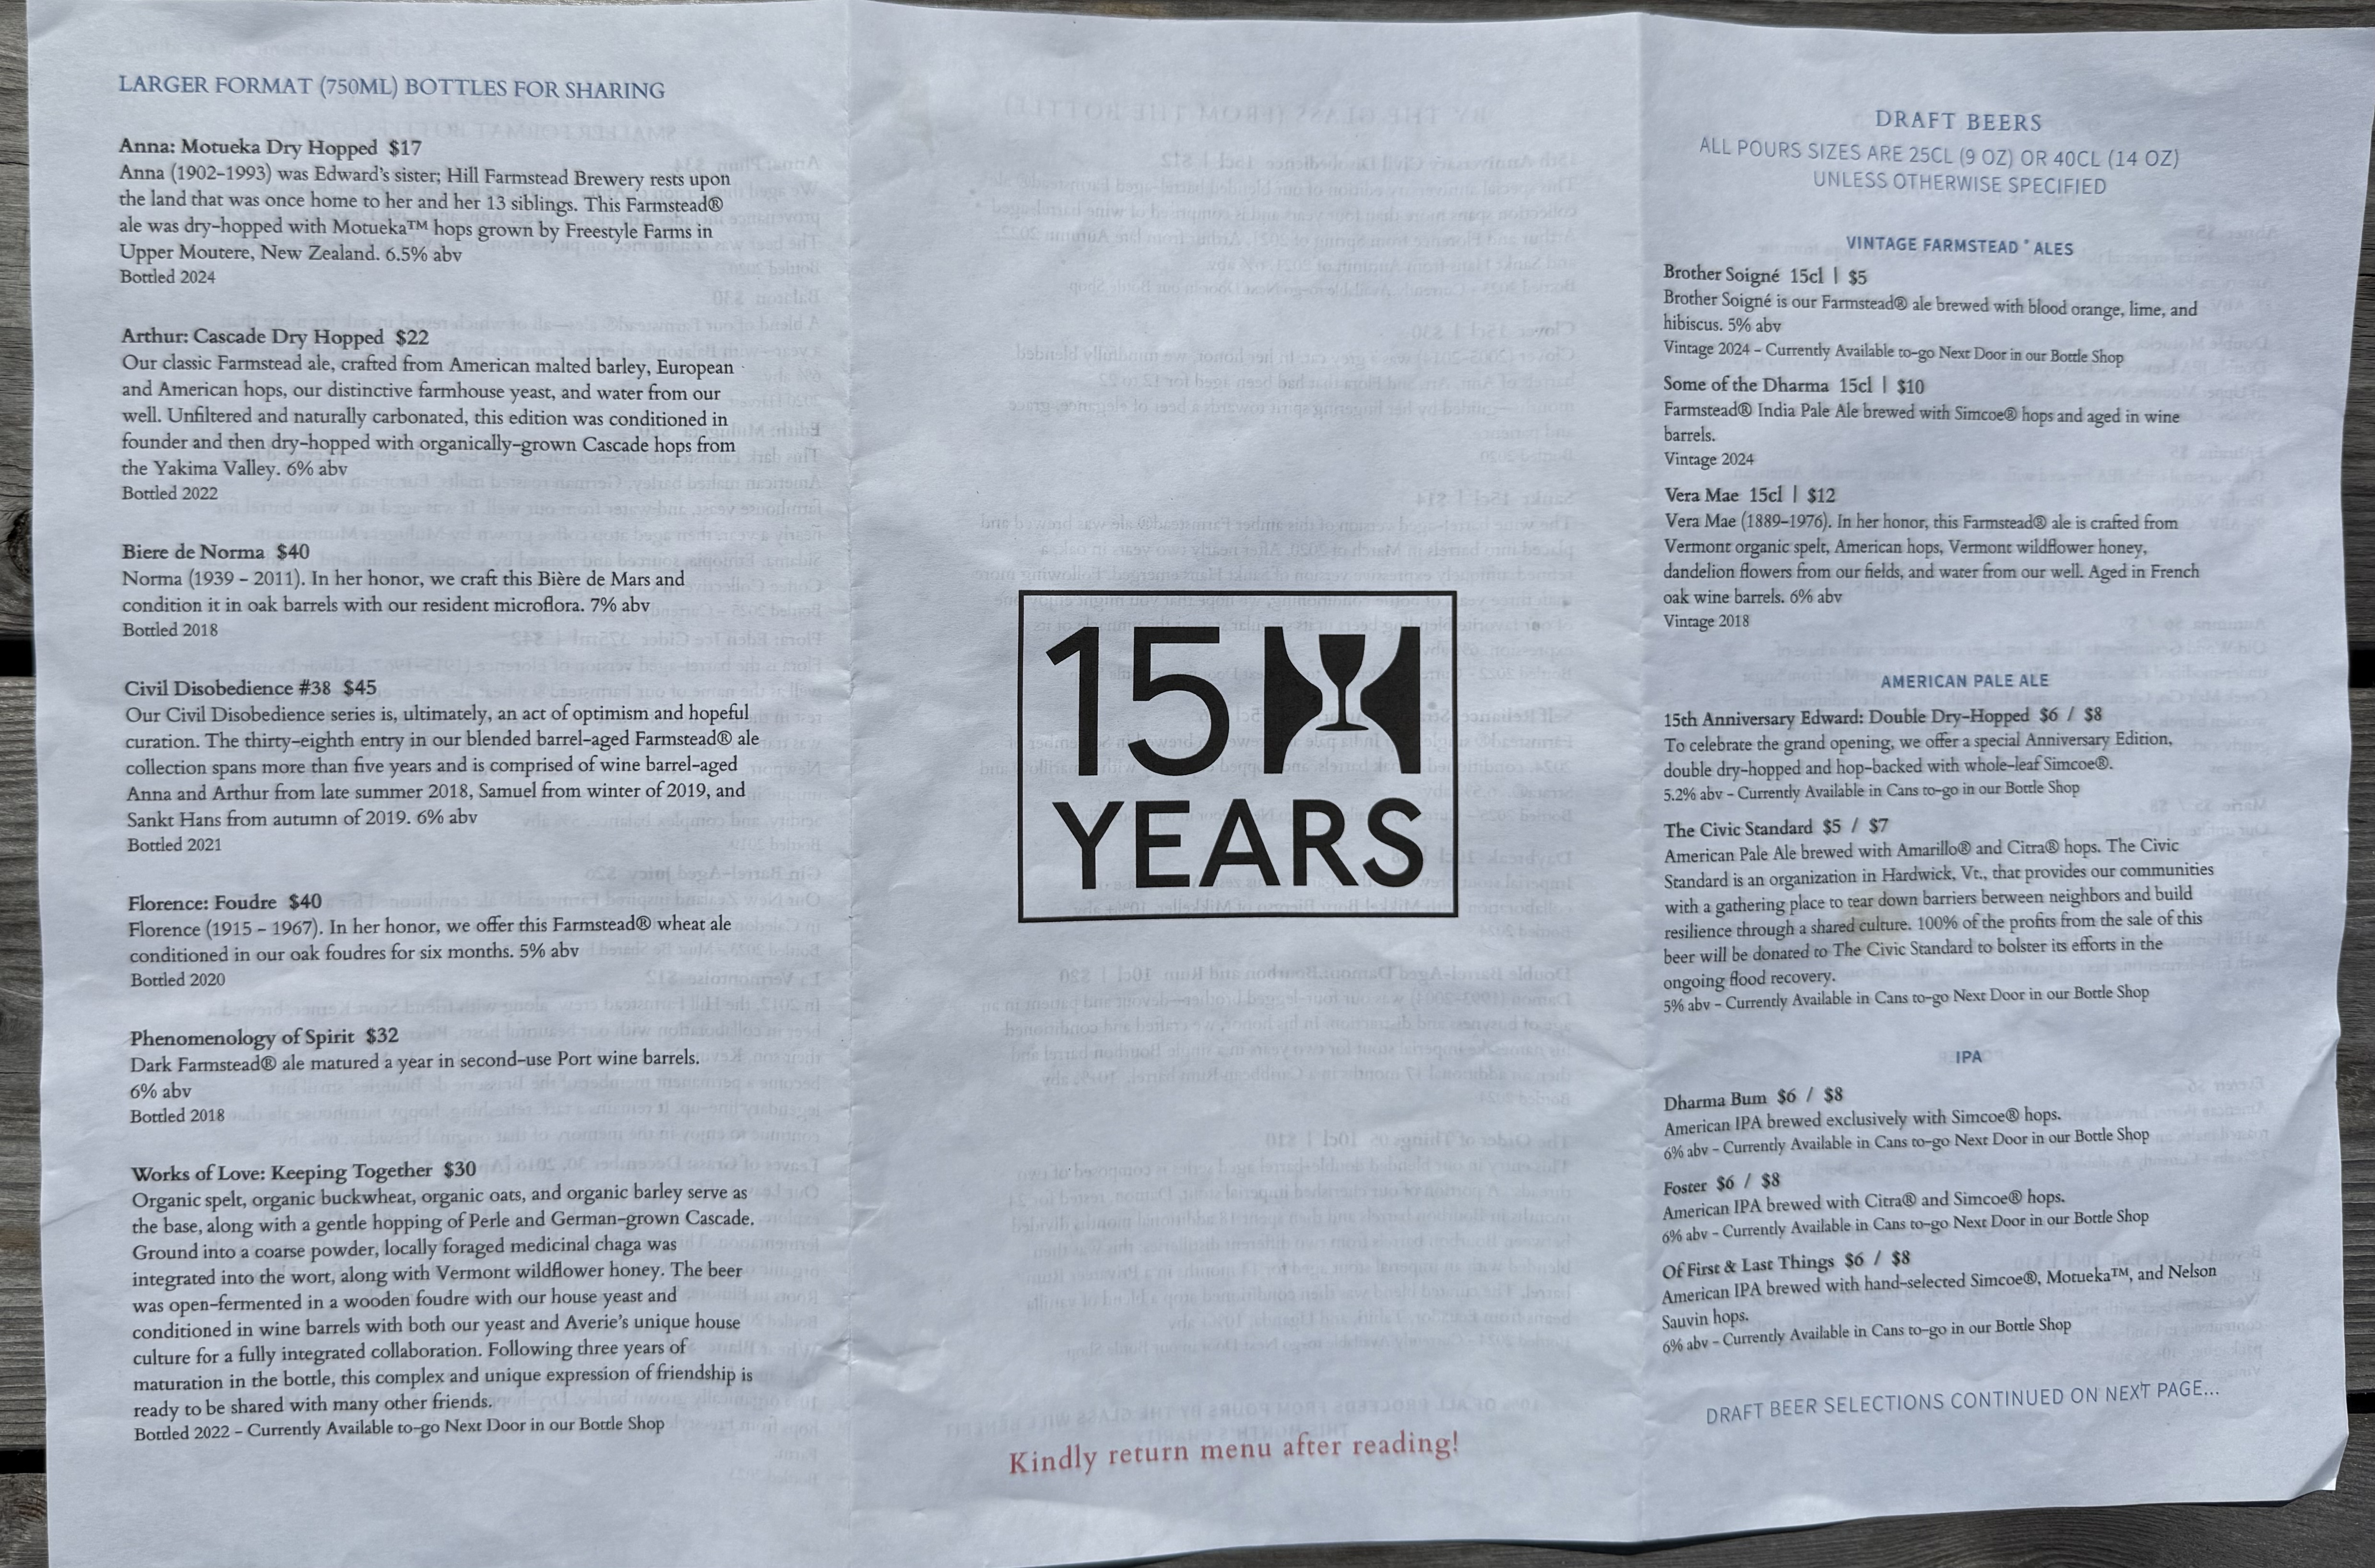 LARGER FORMAT (750ML) BOTTLES FOR SHARING
Anna: Motueka Dry Hopped $17
Anna (1902-1993) was Edward's sister; Hill Farmstead Brewery rests upon
the land that was once home to her and her 13 siblings. This Farmstead®
ale was dry-hopped with Motueka™ hops grown by Freestyle Farms in
Upper Moutere, New Zealand. 6.5% abv
Bottled 2024
Arthur: Cascade Dry Hopped $22
Our classic Farmstead ale, crafted from American malted barley, European
and American hops, our distinctive farmhouse yeast, and water from our
well. Unfiltered and naturally carbonated, this edition was conditioned in
founder and then dry-hopped with organically-grown Cascade hops from
the Yakima Valley. 6% abv
Bottled 2022
Biere de Norma $40
Norma (1939 - 2011). In her honor, we craft this Bière de Mars and
condition it in oak barrels with our resident microflora. 7% abv
Bottled 2018
Civil Disobedience #38 $45
Our Civil Disobedience series is, ultimately, an act of optimism and hopeful
curation. The thirty-eighth entry in our blended barrel-aged Farmstead® ale
collection spans more than five years and is comprised of wine barrel-aged
Anna and Arthur from late summer 2018, Samuel from winter of 2019, and
Sankt Hans from autumn of 2019. 6% abv
Bottled 2021
Florence: Foudre $40
Florence (1915 - 1967). In her honor, we offer this Farmstead® wheat ale
conditioned in our oak foudres for six months. 5% abv
Bottled 2020
Phenomenology of Spirit $32
Dark Farmstead® ale matured a year in second-use Port wine barrels.
6% abv
Bottled 2018
Works of Love: Keeping Together $30
Organic spelt, organic buckwheat, organic oats, and organic barley serve as
the base, along with a gentle hopping of Perle and German-grown Cascade.
Ground into a coarse powder, locally foraged medicinal chaga was
integrated into the wort, along with Vermont wildflower honey. The beer
was open-fermented in a wooden foudre with our house yeast and
conditioned in wine barrels with both our yeast and Averie's unique house
culture for a fully integrated collaboration. Following three years of
maturation in the bottle, this complex and unique expression of friendship is
ready to be shared with many other friends.
Bottled 2022 - Currently Available to-go Next Door in our Bottle Shop
15
YEARS
Kindly return menu after reading!
DRAFT BEERS
ALL POURS SIZES ARE 25CL (9 OZ) OR 40CL (14 OZ)
UNLESS OTHERWISE SPECIFIED
VINTAGE FARMSTEAD® ALES
Brother Soigné 15cl | $5
Brother Soigné is our Farmstead® ale brewed with blood orange, lime, and
hibiscus. 5% abv
Vintage 2024 - Currently Available to-go Next Door in our Bottle Shop
Some of the Dharma 15cl | $10
Farmstead® India Pale Ale brewed with Simcoe® hops and aged in wine
barrels.
Vintage 2024
Vera Mae 15cl | $12
Vera Mae (1889-1976). In her honor, this Farmstead® ale is crafted from
Vermont organic spelt, American hops, Vermont wildflower honey,
dandelion flowers from our fields, and water from our well. Aged in French
oak wine barrels. 6% abv
Vintage 2018
AMERICAN PALE ALE
15th Anniversary Edward: Double Dry-Hopped $6 / $8
To celebrate the grand opening, we offer a special Anniversary Edition,
double dry-hopped and hop-backed with whole-leaf Simcoe®.
5.2% abv - Currently Available in Cans to-go in our Bottle Shop
The Civic Standard $5 / $7
American Pale Ale brewed with Amarillo® and Citra® hops. The Civic
Standard is an organization in Hardwick, Vt., that provides our communities
with a gathering place to tear down barriers between neighbors and build
resilience through a shared culture. 100% of the profits from the sale of this
beer will be donated to The Civic Standard to bolster its efforts in the
ongoing flood recovery.
5% abv - Currently Available in Cans to-go Next Door in our Bottle Shop
IPA
Dharma Bum $6 / $8
American IPA brewed exclusively with Simcoe® hops.
6% abv - Currently Available in Cans to-go Next Door in our Bottle Shop
Foster $6 / $8
American IPA brewed with Citra® and Simcoe® hops.
6% abv - Currently Available in Cans to-go Next Door in our Bottle Shop
Of First & Last Things $6 / $8
American IPA brewed with hand-selected Simcoe®, Motueka™, and Nelson
Sauvin hops.
6% abv - Currently Available in Cans to-go in our Bottle Shop
DRAFT BEER SELECTIONS CONTINUED ON NEXT PAGE...